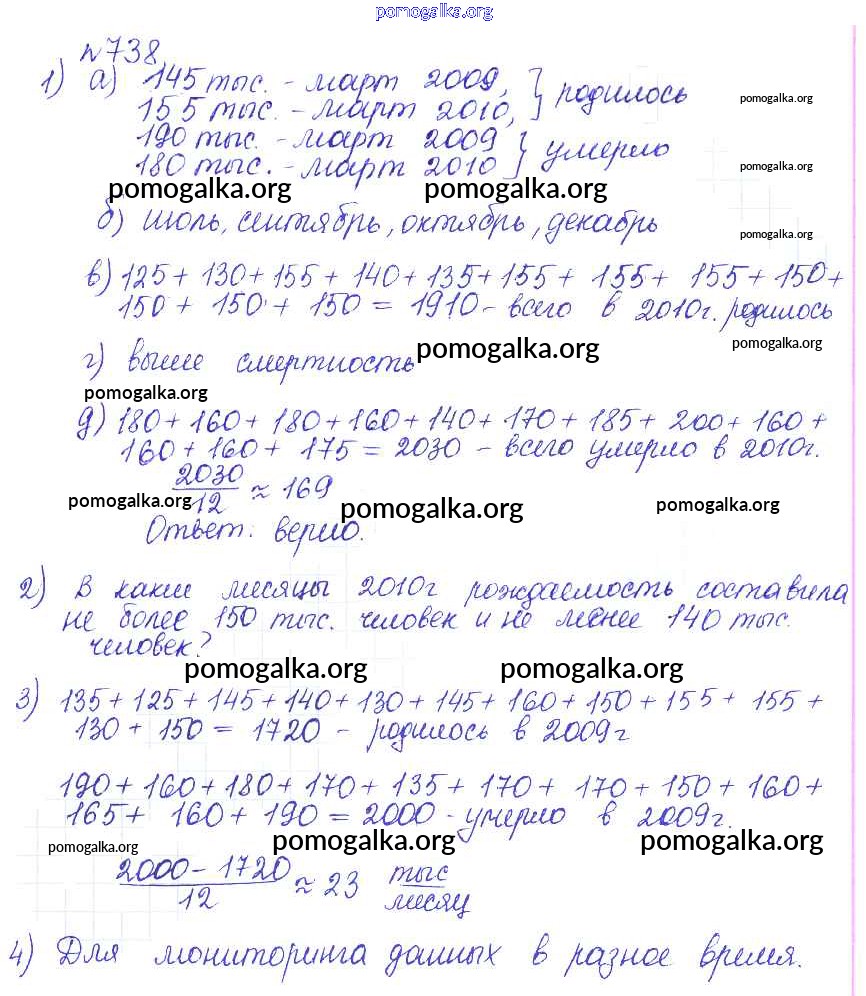 pomogalka.org
№738
1) а) 145 тыс. - март 2009,
155 тыс. - март 2010, } родилось
pomogalka.org
190 тыс. - март 2009
180 тыс. - март 2010 } умерло
pomogalka.org
pomogalka.org pomogalka.org
б) июль, сентябрь, октябрь, декабрь
pomogalka.org
в) 125 + 130 + 155 + 140 + 135 + 155 + 155 + 155 + 150 +
150 + 150 + 150 = 1910 - всего в 2010г. родилось
pomogalka.org
г) выше смертность
pomogalka.org
pomogalka.org
д) 180 + 160 + 180 + 160 + 140 + 170 + 185 + 200 + 160 +
160 + 160 + 175 = 2030 - всего умерло в 2010г.
2030/12 ≈ 169
pomogalka.org pomogalka.org pomogalka.org
Ответ: верно.
2) В какие месяцы 2010г рождаемость составила
не более 150 тыс. человек и не менее 140 тыс.
человек?
pomogalka.org pomogalka.org
3) 135 + 125 + 145 + 140 + 130 + 145 + 160 + 150 + 155 + 155 +
130 + 150 = 1720 - родилось в 2009г
190 + 160 + 180 + 170 + 135 + 170 + 170 + 150 + 160 +
165 + 160 + 190 = 2000 - умерло в 2009г.
pomogalka.org pomogalka.org pomogalka.org
2000 - 1720/12 ≈ 23 тыс/месяц
4) Для мониторинга данных в разное время.